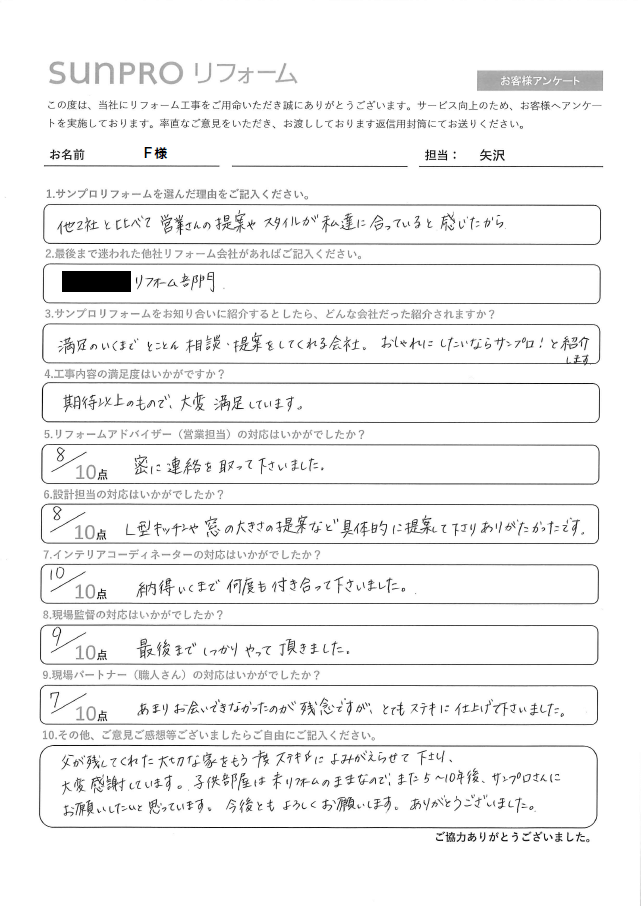 SUNPRO リフォーム
お客様アンケート
この度は、当社にリフォーム工事をご用命いただき誠にありがとうございます。サービス向上のため、お客様へアンケー
トを実施しております。率直なご意見をいただき、お渡ししております返信用封筒にてお送りください。
お名前 F様 担当： 矢沢
1.サンプロリフォームを選んだ理由をご記入ください。
他2社と比べて 営業さんの提案や スタイルが 私達に 合っていると 感じたから
2.最後まで迷われた他社リフォーム会社があればご記入ください。
リフォーム部門
3.サンプロリフォームをお知り合いに紹介するとしたら、どんな会社だった紹介されますか？
満足のいくまで とことん 相談・提案をしてくれる会社。 おしゃれに したいならサンプロ！と紹介
します
4.工事内容の満足度はいかがですか？
期待以上のもので、大変 満足しています。
5.リフォームアドバイザー（営業担当）の対応はいかがでしたか？
8/10点 密に 連絡を 取って下さいました。
6.設計担当の対応はいかがでしたか？
8/10点 L型キッチンや 窓の大きさの提案など 具体的に提案して下さりありがたかったです。
7.インテリアコーディネーターの対応はいかがでしたか？
10/10点 納得いくまで 何度も 付き合って下さいました。
8.現場監督の対応はいかがでしたか？
9/10点 最後まで しっかり やって 頂きました。
9.現場パートナー（職人さん）の対応はいかがでしたか？
7/10点 あまり お会いできなかったのが 残念ですが、とても ステキに 仕上げて下さいました。
10.その他、ご意見ご感想等ございましたらご自由にご記入ください。
父が残してくれた 大切な家をもう一度 ステキに よみがえらせて 下さり、
大変 感謝しています。 子供部屋は 未リフォームのままなので、また 5～10年後、サンプロさんに
お願いしたいと思っています。 今後とも よろしくお願いします。 ありがとうございました。
ご協力ありがとうございました。